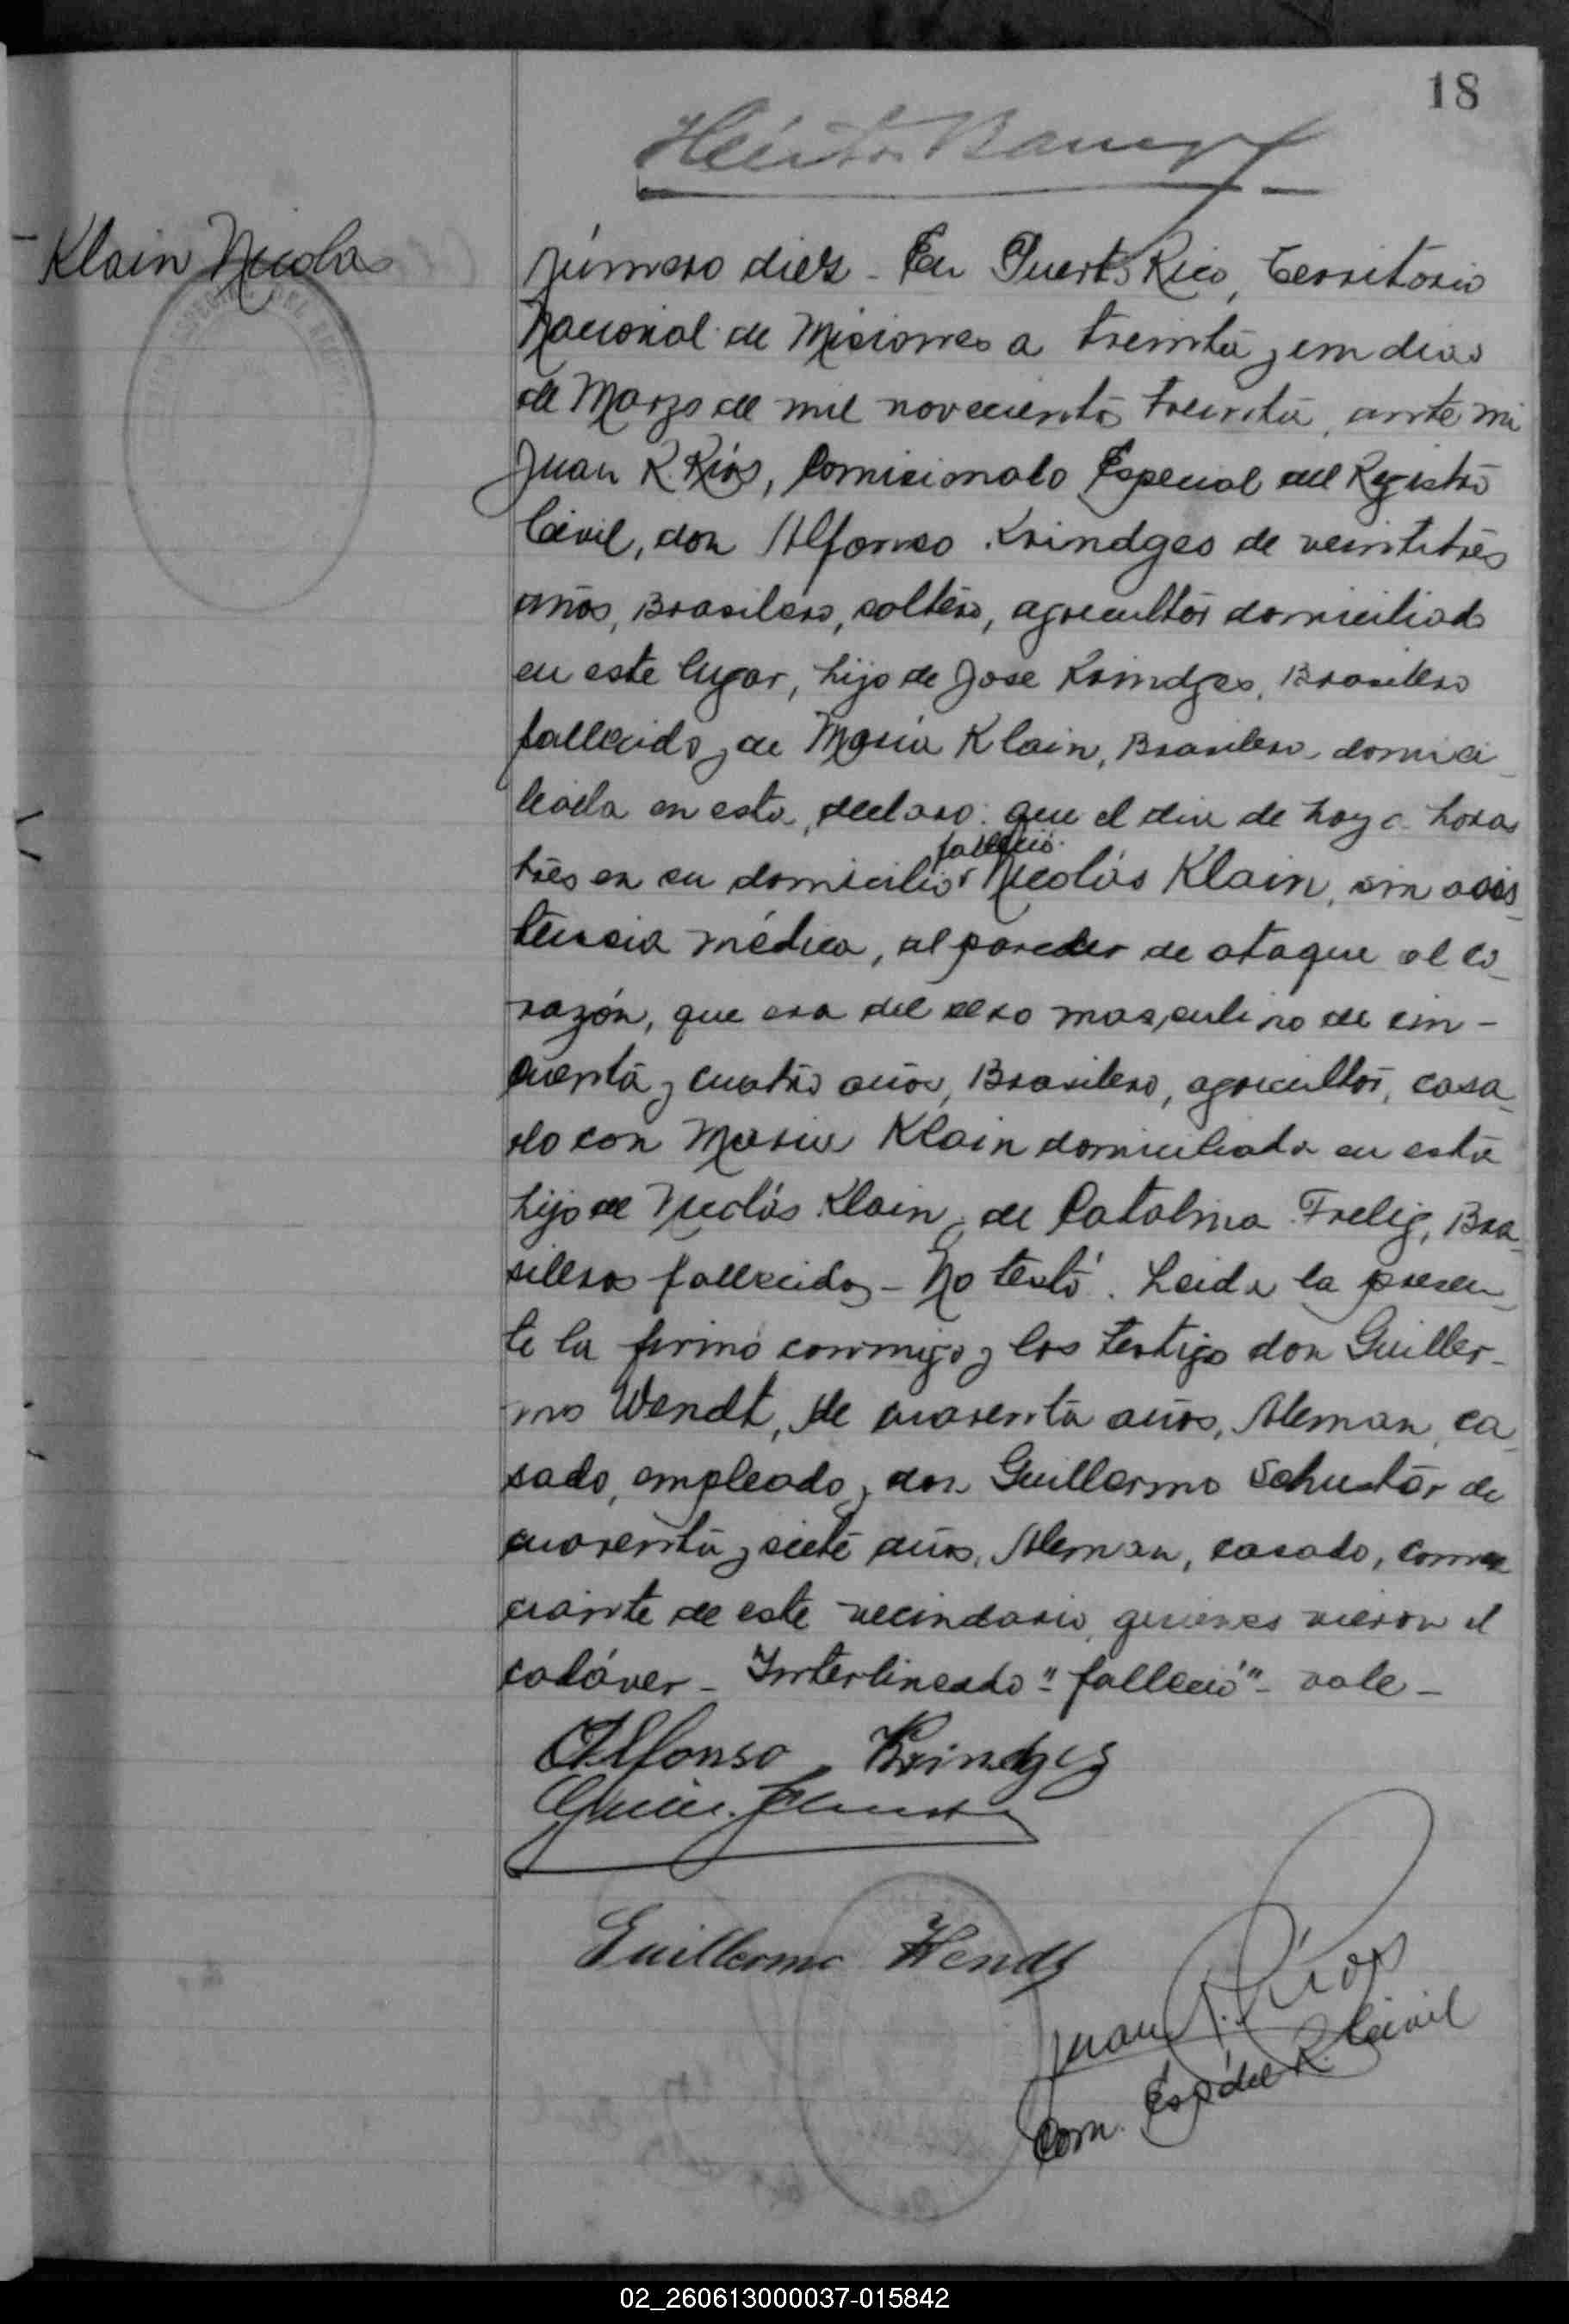 18
Klain Nicolas
Número diez - En Puerto Rico, Territorio
Nacional de Misiones a treinta y un dias
de Marzo de mil novecientos treinta, ante mi
Juan R. Ríos, Comicionado Especial del Registro
Civil, don Alfonso Krindges de veintitrés
años, Brasilero, soltero, agricultor domiciliado
en este lugar, hijo de Jose Krindges, Brasilero
fallecido y de María Klain, Brasilera domici-
liada en esta, declaro: que el dia de hoy a horas
falleció
tres en su domicilio Nicolás Klain, sin asis-
tencia médica, al parecer de ataque al co-
razón, que era del sexo masculino de cin-
cuenta y cuatro años, Brasilero, agricultor, casa-
do con Maria Klain domiciliada en esta
hijo de Nicolás Klain y de Catalina Frelig, Bra-
sileros fallecidos - No testó. Leida la presen-
te la firmó conmigo y los testigo don Guiller-
mo Wendt, de cuarenta años, Aleman, ca-
sado, empleado y don Guillermo Schuster de
cuarenta y siete años, Aleman, casado, comer
ciante de este vecindario, quienes vieron el
cadáver - Interlineado "falleció" - vale -
Alfonso Krindges
Guillermo Wendt
Juan R. Ríos
Com. Esp. del R. Civil
02_260613000037-015842